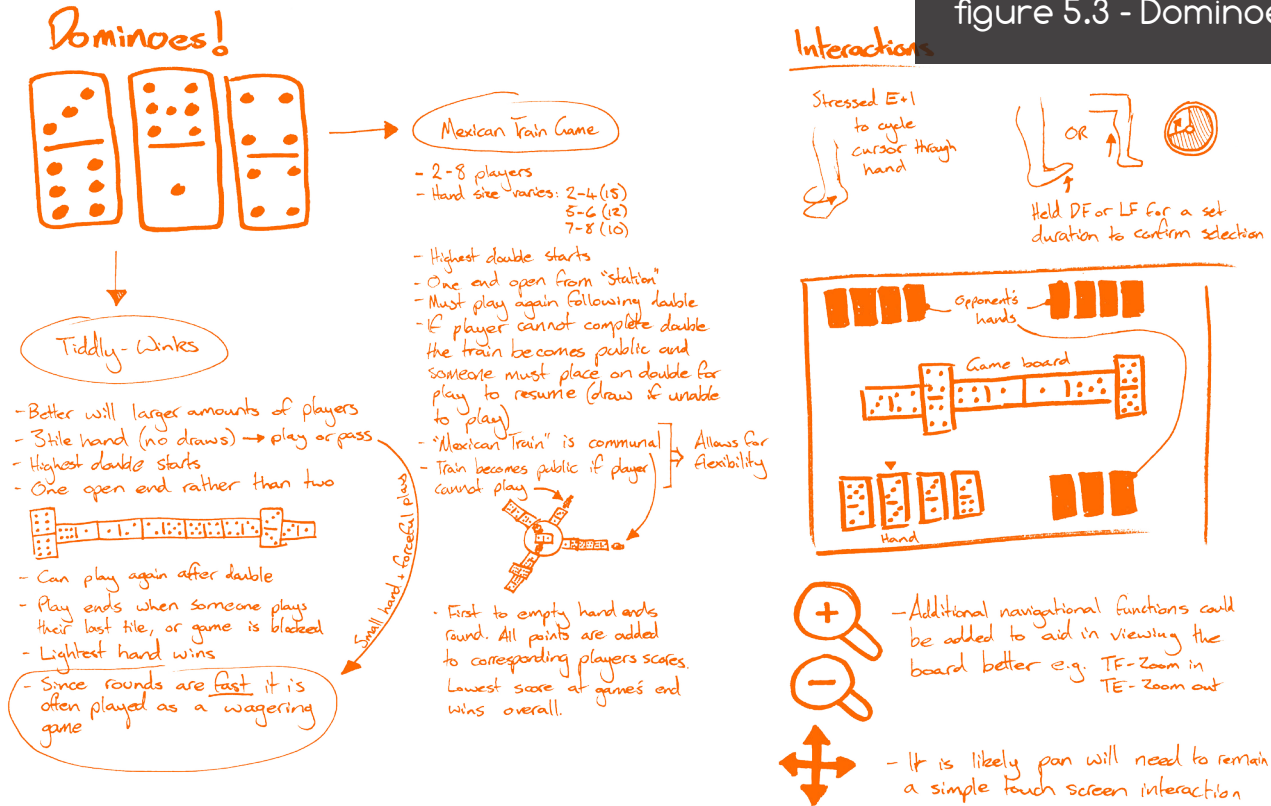 figure 5.3 - Dominoe
Dominoes!
Tiddly-Winks
- Better will larger amounts of players
- 3 tile hand (no draws) → play or pass
- Highest double starts
- One open end rather than two
- Can play again after double
- Play ends when someone plays
their last tile, or game is blocked
- Lightest hand wins
- Since rounds are fast it is
often played as a wagering
game
Small hand + forceful plays
Mexican Train Game
- 2-8 players
- Hand size varies: 2-4 (15)
5-6 (12)
7-8 (10)
- Highest double starts
- One end open from "station"
- Must play again following double
- If player cannot complete double
the train becomes public and
someone must place on double for
play to resume (draw if unable
to play)
- "Mexican Train" is communal
- Train becomes public if player
cannot play
Allows for
flexibility
- First to empty hand ends
round. All points are added
to corresponding players scores.
Lowest score at game's end
wins overall.
Interactions
Stressed E+I
to cycle
cursor through
hand
OR
Held DF or LF for a set
duration to confirm selection
Opponent's
hands
Game board
Hand
- Additional navigational functions could
be added to aid in viewing the
board better e.g. TF-Zoom in
TE-Zoom out
- It is likely pan will need to remain
a simple touch screen interaction